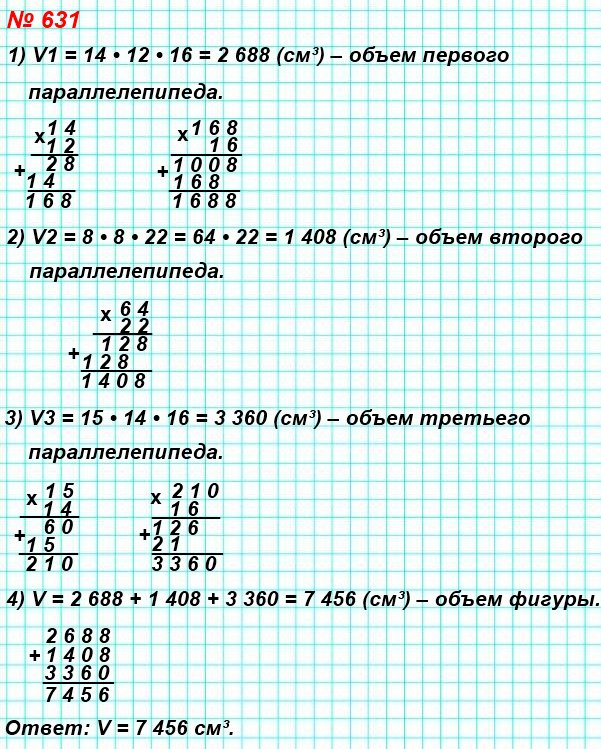 № 631
1) V1 = 14 • 12 • 16 = 2 688 (см³) – объем первого
параллелепипеда.
x 1 4
1 2
+ 2 8
1 4
1 6 8
x 1 6 8
1 6
+ 1 0 0 8
1 6 8
1 6 8 8
2) V2 = 8 • 8 • 22 = 64 • 22 = 1 408 (см³) – объем второго
параллелепипеда.
x 6 4
2 2
+ 1 2 8
1 2 8
1 4 0 8
3) V3 = 15 • 14 • 16 = 3 360 (см³) – объем третьего
параллелепипеда.
x 1 5
1 4
+ 6 0
1 5
2 1 0
x 2 1 0
1 6
+ 1 2 6
2 1
3 3 6 0
4) V = 2 688 + 1 408 + 3 360 = 7 456 (см³) – объем фигуры.
2 6 8 8
+ 1 4 0 8
3 3 6 0
7 4 5 6
Ответ: V = 7 456 см³.